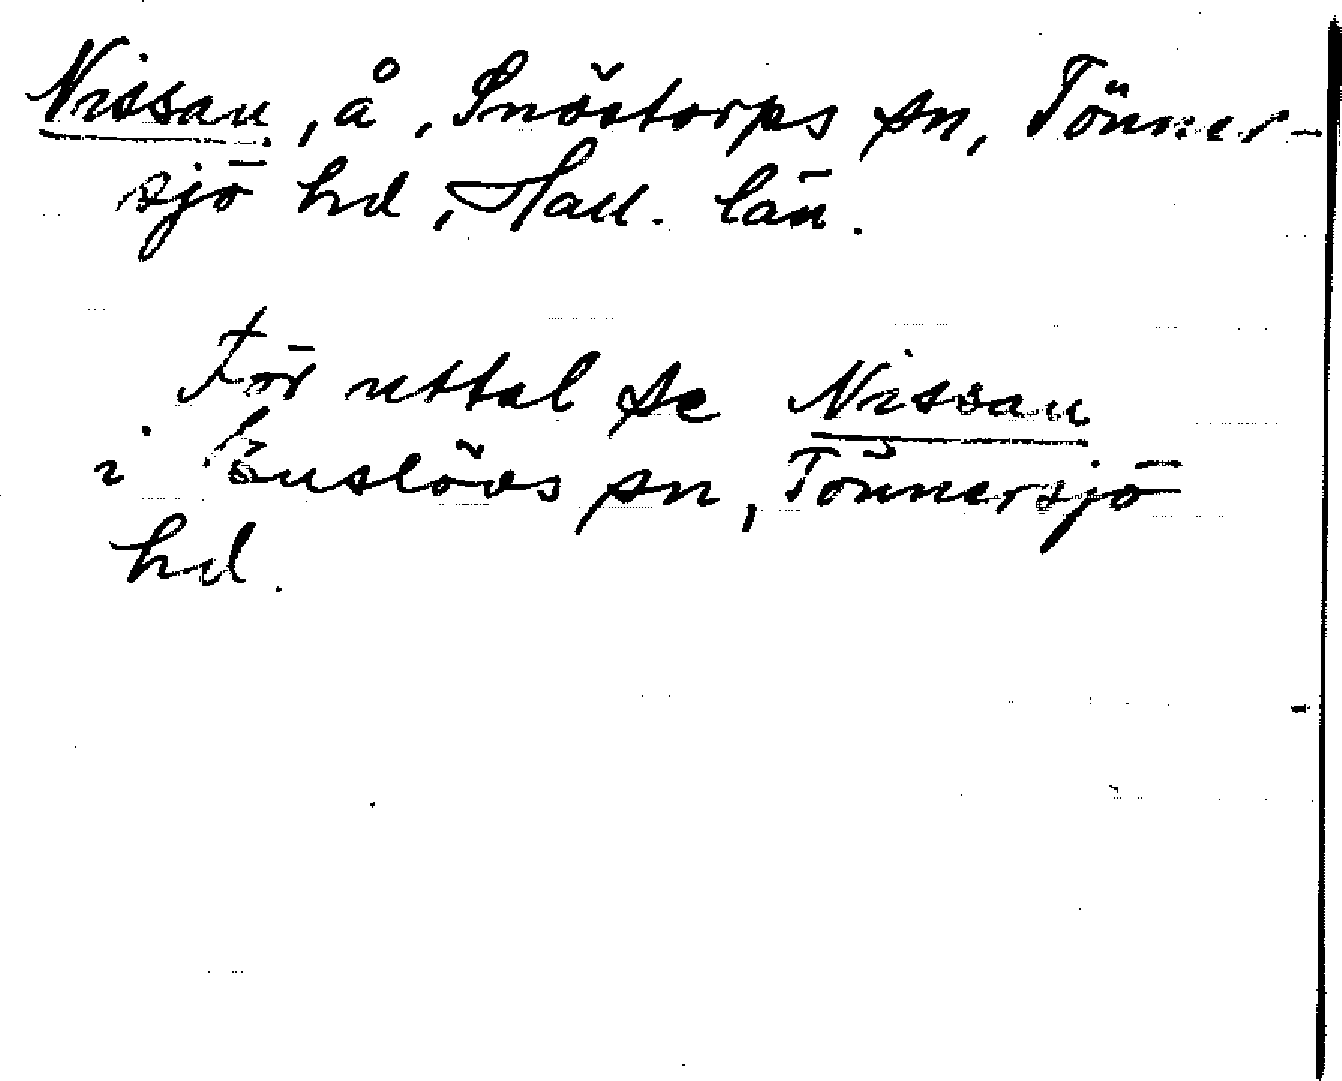 Nissan, å, Snöstorps sn, Tönner-
sjö hd, Hall. län.
För uttal se Nissan
i Enslövs sn, Tönnersjö
hd.